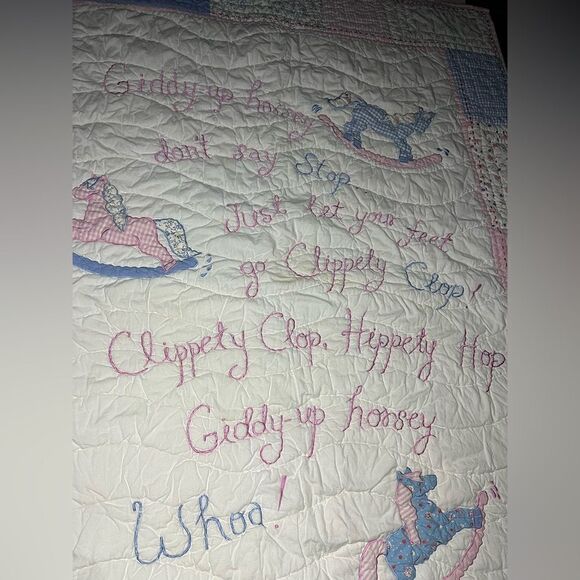 Giddy-up horsey
don't say Stop
Just let your feet
go Clippety Clop!
Clippety Clop, Hippety Hop
Giddy-up horsey
Whoa!